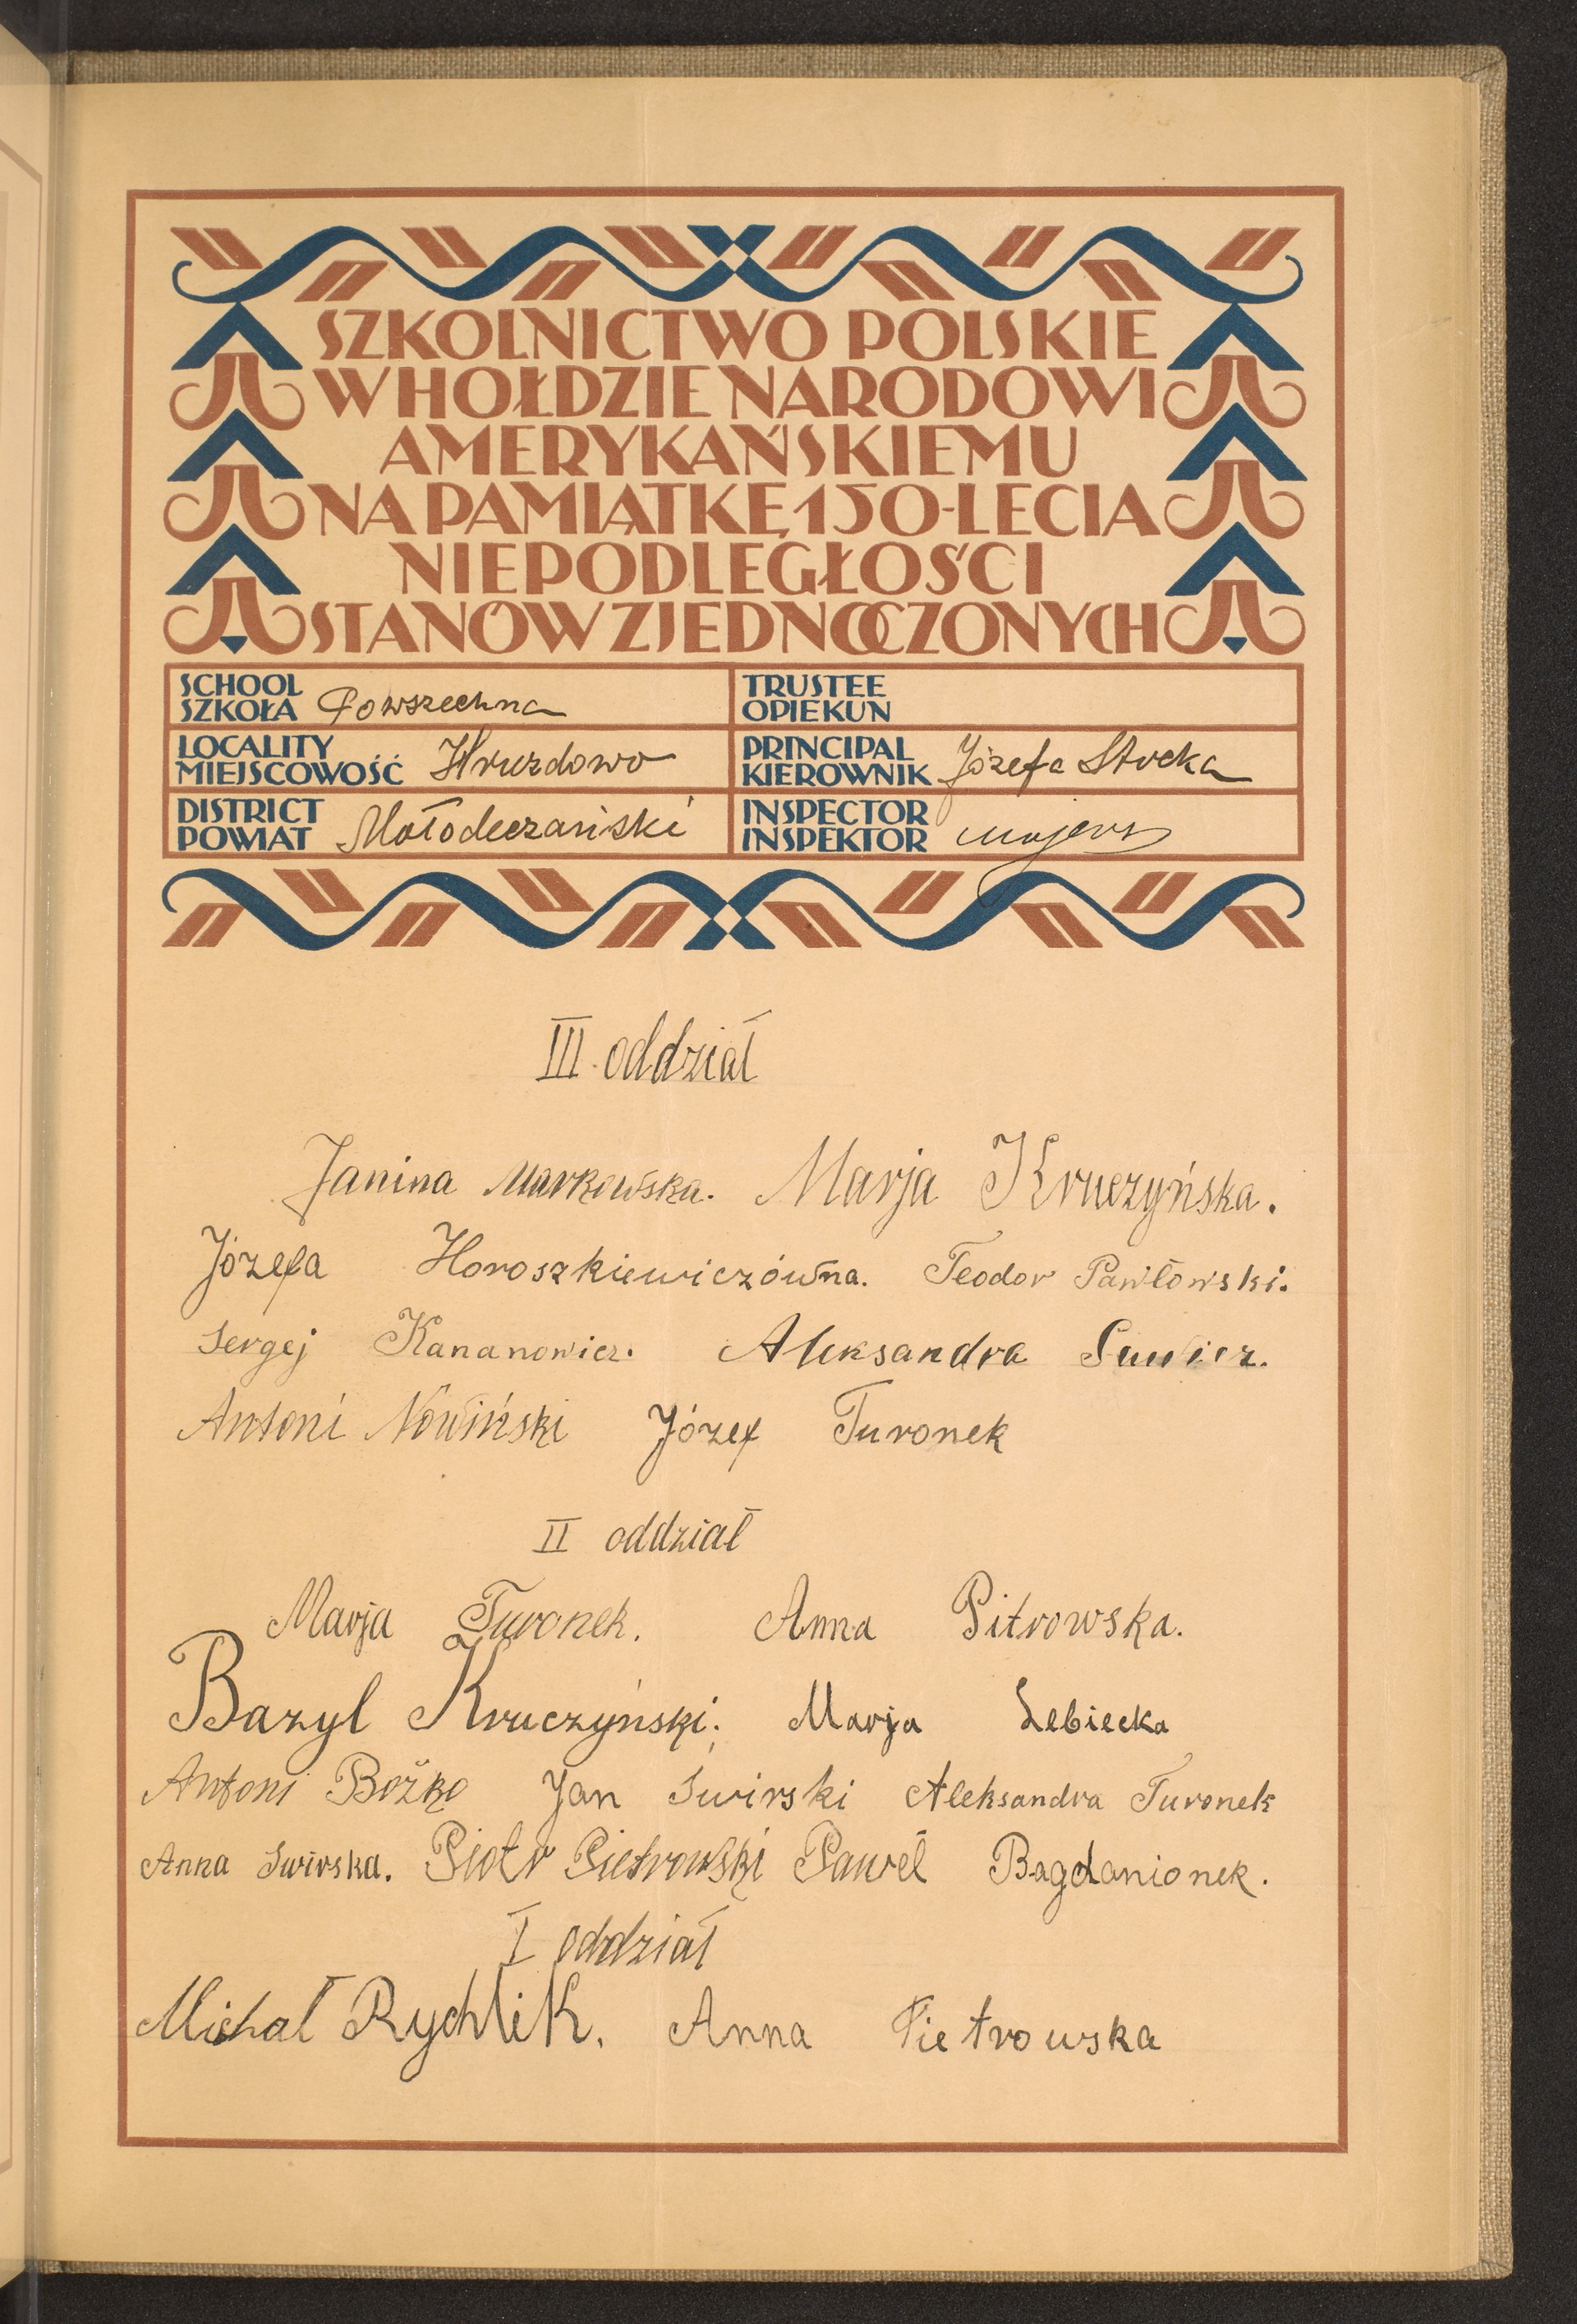 SZKOLNICTWO POLSKIE
W HOŁDZIE NARODOWI
AMERYKAŃSKIEMU
NA PAMIĄTKĘ 150-LECIA
NIEPODLEGŁOŚCI
STANÓW ZJEDNOCZONYCH
SCHOOL
SZKOŁA Powszechna
TRUSTEE
OPIEKUN
LOCALITY
MIEJSCOWOŚĆ Hruzdowo
PRINCIPAL
KIEROWNIK Józefa Stocka
DISTRICT
POWIAT Mołodeczański
INSPECTOR
INSPEKTOR
III oddział
Janina Markowska. Marja Kruczyńska.
Józefa Horoszkiewiczówna. Teodor Pawłowski.
Sergej Kananowicz. Aleksandra
Antoni Nowiński Józef Turonek
II oddział
Marja Turonek. Anna Pitrowska.
Bazyl Kruczyński. Marja Lebiecka
Antoni Bożko Jan Świrski Aleksandra Turonek
Anna Swirska. Piotr Pietrowski Paweł Bagdanionek.
I oddział
Michał Rychlik. Anna Pietrowska